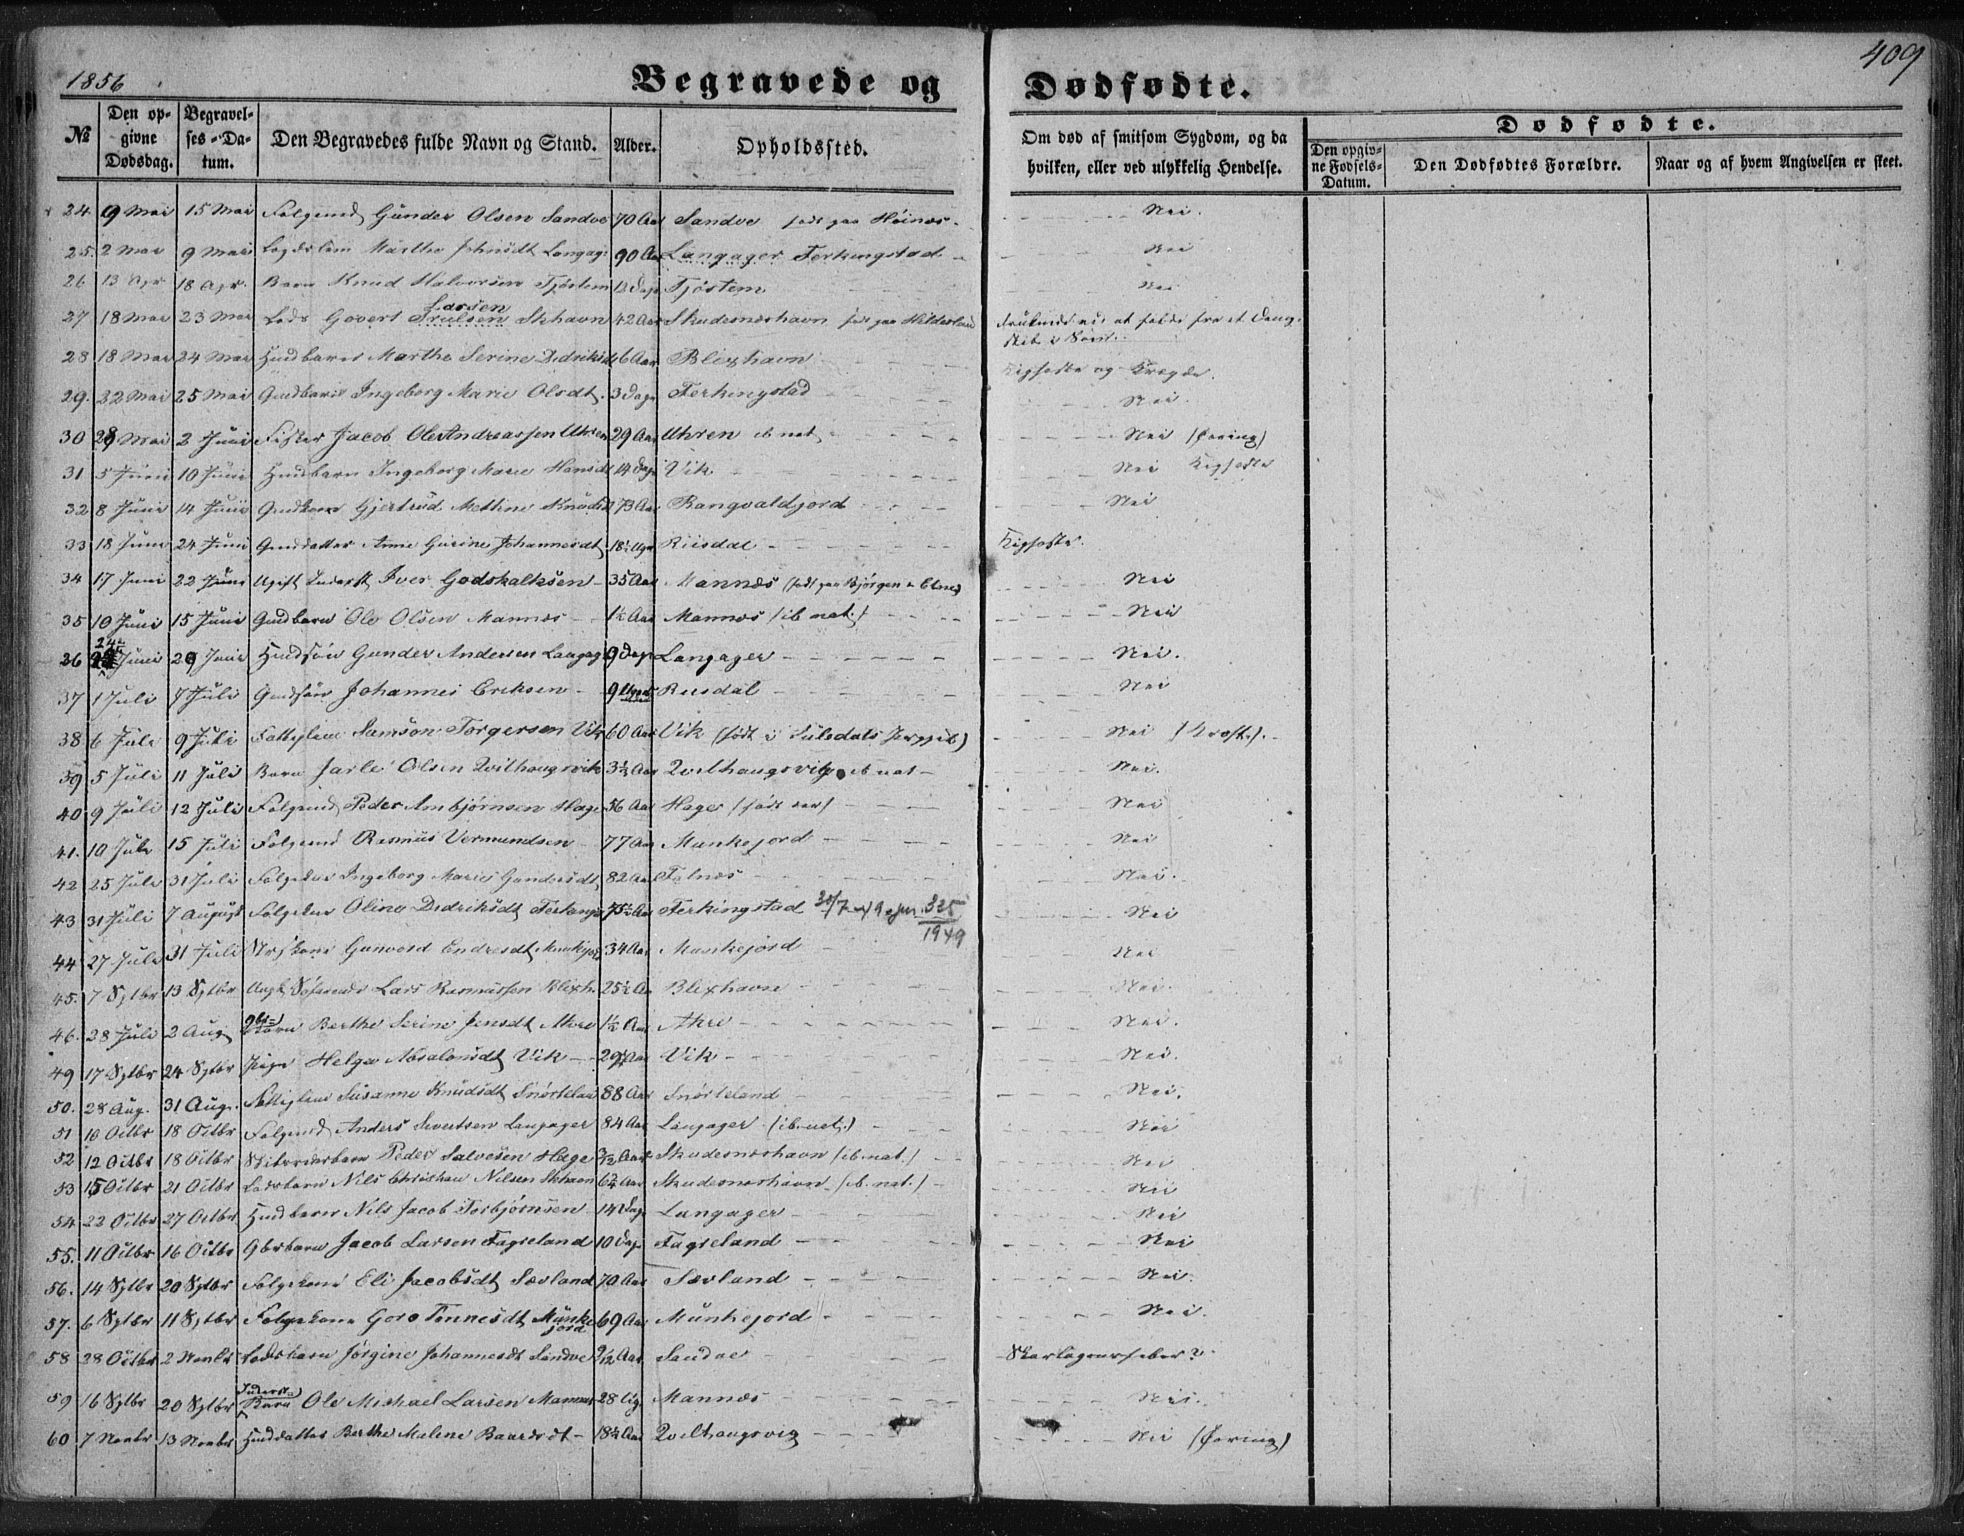 1856
Begravede og Dødfødte.
409
№
Den opgivne Dødsdag.
Begravelses-Datum.
Den Begravedes fulde Navn og Stand.
Alder.
Opholdssted.
Om død af smitsom Sygdom, og da hvilken, eller ved ulykkelig Hendelse.
Dødfødte.
Den opgivne Fødsels-Datum.
Den Dødfødtes Forældre.
Naar og af hvem Angivelsen er skeet.
24. 9 Mai 15 Mai Gunder Olsen Sandve 70 Aar Sandve født paa Høines Nei.
25. 2 Mai 9 Mai Marthe Langag 90 Aar Langager Ferkingstad Nei
26 13 Apr 18 Apr. Barn Knud Halvorsen Tjøstem 12 Dage Tjøstem Nei
27 18 Mai 23 Mai Lods Govert Larsen Skhavn 42 Aar Skudesneshavn født paa
28 18 Mai 24 Mai Husbarn Marthe Serine Didriksd 6 Aar Blixhavn Kighoste og
29. 22 Mai 25 Mai Gmdbarn Ingeborg Marie Olsdt. 3 Dage Ferkingstad Nei.
30 28 Mai 2 Juni Fisker Jacob Ole Andreassen Uhren 29 Aar Uhren ib. nat. Nei
31 5 Juni 10 Juni Husbarn Ingeborg Marie Hansdt 14 Dage Vik Nei Kighoste
32 8 Juni 14 Juni Gmdkone Gjertrud Methine Knudsd 73 Aar Rangvaldjord Nei
33 18 Juni 24 Juni Gmddatter Anne Gurine Johannesdt. 18½ Uger Riisdal Kighoste.
34 17 Juni 22 Juni Ugift Inderst Iver Godskalksen 35 Aar Mannæs (født paa Bjørgen i Etne) Nei
35 10 Juni 15 Juni Gmdbarn Ole Olsen Mannes 1½ Aar Mannæs (ib. nat.) Nei
36 24 Juni 29 Juni Husdsøn Gunder Andersen Langag 9 Dage Langager Nei.
37 1 Juli 7 Juli Gmdsøn Johannes Eriksen 9 Uger Riisdal Nei
38 6 Juli 9 Juli Fattiglem Samson Torgersen Vik 60 Aar Vik (født i Suledals Nei
39 5 Juli 11 Juli Barn Jarle Olsen Qvilhaugsvik 3½ Aar Qvilhaugsvig ib. nat Nei.
40 9 Juli 12 Juli Folgemd Peder Ambjørnsen Hage 56 Aar Hage Nei
41. 10 Juli 15 Juli Folgemd Rasmus Vermundsen 77 Aar Munkejord Nei
42 25 Juli 31 Juli Folgekne Ingeborg Marie Gundersdt 82 Aar Falnæs Nei.
43 31 Juli 7 August Folgekne Oline Didriksdt Ferkings 75½ Aar Ferkingstad 30/7-49 ejnr. 325/1949 Nei
44 27 Juli 31 Juli kone Gunvord Endresdt Munkejord 34 Aar Munkejord Nei
45. 7 Sptbr 13 Sptbr Lars Rasmussen Blixh. 25½ Aar Blixhavn Nei.
46. 28 Juli 2 Aug Gbr= Barn Berthe Serine Jensdt Ahre 1½ Aar Ahre Nei.
49 17 Sptbr 24 Sptbr Pige Helga Absalonsdt Vik 29 Aar Vik Nei.
50. 28 Aug. 31 Aug. Fattiglem Susanne Knudsdt Snørteland 88 Aar Snørteland Nei.
51 16 Octbr 18 Octbr Folgemd Anders Sivertsen Langager 84 Aar Langager (ib. nat.) Nei
52 12 Octbr 18 Octbr Peder Salvesen Hage Aar Skudesneshavn (ib. nat.) Nei
53 15 Octbr 21 Octbr Lodsbarn Nils Christian Nilsen Skhavn Aar Skudesneshavn (ib. nat.) Nei
54. 22 Octbr 27 Octbr Husbarn Nils Jacob Torbjørnsen 14 Dage Langager Nei
55. 11 Octbr 16 Octbr Gbrbarn Jacob Larsen Fagreland 10 Dage Fagreland Nei
56. 14 Sptbr 20 Sptbr Folgekone Eli Jacobsdt Sævland 70 Aar Sævland Nei.
57. 6 Sptbr 11 Sptbr Folgekone Goro Tønnesdt Munkejord 69 Aar Munkejord Nei.
58 28 Octbr 2 Novbr Lodsbarn Jørgine Johannesdt Sandve Aar Sandve Skarlagensfeber?
59 16 Sptbr 20 Sptbr Inderst= Barn Ole Michael Larsen Mannæs 28 Ug. Mannæs Nei.
60 7 Novbr 13 Novbr Husdatter Berthe Malene Baardsdt 18½ Aar Qvilhaugsvig Nei